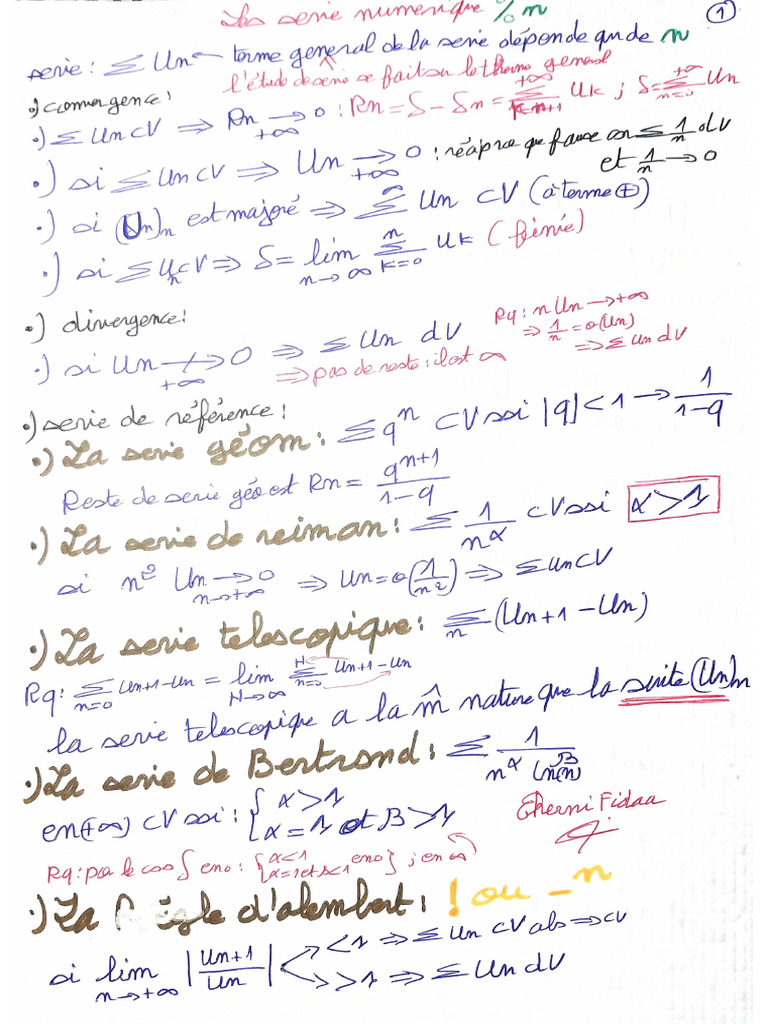 Les serie numerique % n
①
serie : ∑ Un terme general de la serie dépende que de n
l'étude de serie se fait sur le therme general
•) convergence :
•) ∑ Un CV ⇒ Rn → 0 +∞ : Rn = S - Sn = ∑ k=n+1 +∞ Uk ; S = ∑ n=0 +∞ Un
•) si ∑ Un CV ⇒ Un → 0 +∞ : réciproque fausse ∑ 1/n dV
et 1/n → 0
•) si (Un)n est majoré ⇒ ∑ Un CV (à terme ⊕)
•) si ∑ Un CV ⇒ S = lim n→∞ ∑ k=0 n Uk (finie)
•) divergence :
Rq : n Un → +∞
⇒ 1/n = o(Un)
⇒ ∑ Un dV
•) si Un ↛ 0 +∞ ⇒ ∑ Un dV
⇒ pas de reste : il est ∞
•) serie de référence :
•) La serie géom : ∑ q^n CV ssi |q| < 1 → 1/(1-q)
Reste de serie géo est Rn = q^(n+1)/(1-q)
•) La serie de reiman : ∑ 1/n^α CV ssi α > 1
si n² Un → 0 n→+∞ ⇒ Un = o(1/n²) ⇒ ∑ Un CV
•) La serie telescopique : ∑ n (Un+1 - Un)
Rq : ∑ n=0 Un+1 - Un = lim N→∞ ∑ n=0 N Un+1 - Un
la serie telescopique a la m̂ nature que la suite (Un)n
•) La serie de Bertrand : ∑ 1/(n^α ln^β(n))
en (+∞) CV ssi : { α > 1
α = 1 et β > 1
Eherni Fidaa
Rq : par le cas ∫ en 0 : { α<1 α=1 et β<1 en 0 } ; en ∞
•) La Règle d'alembert : ! ou _^n
si lim n→+∞ |Un+1/Un| < 1 ⇒ ∑ Un CV abs ⇒ CV
> 1 ⇒ ∑ Un dV